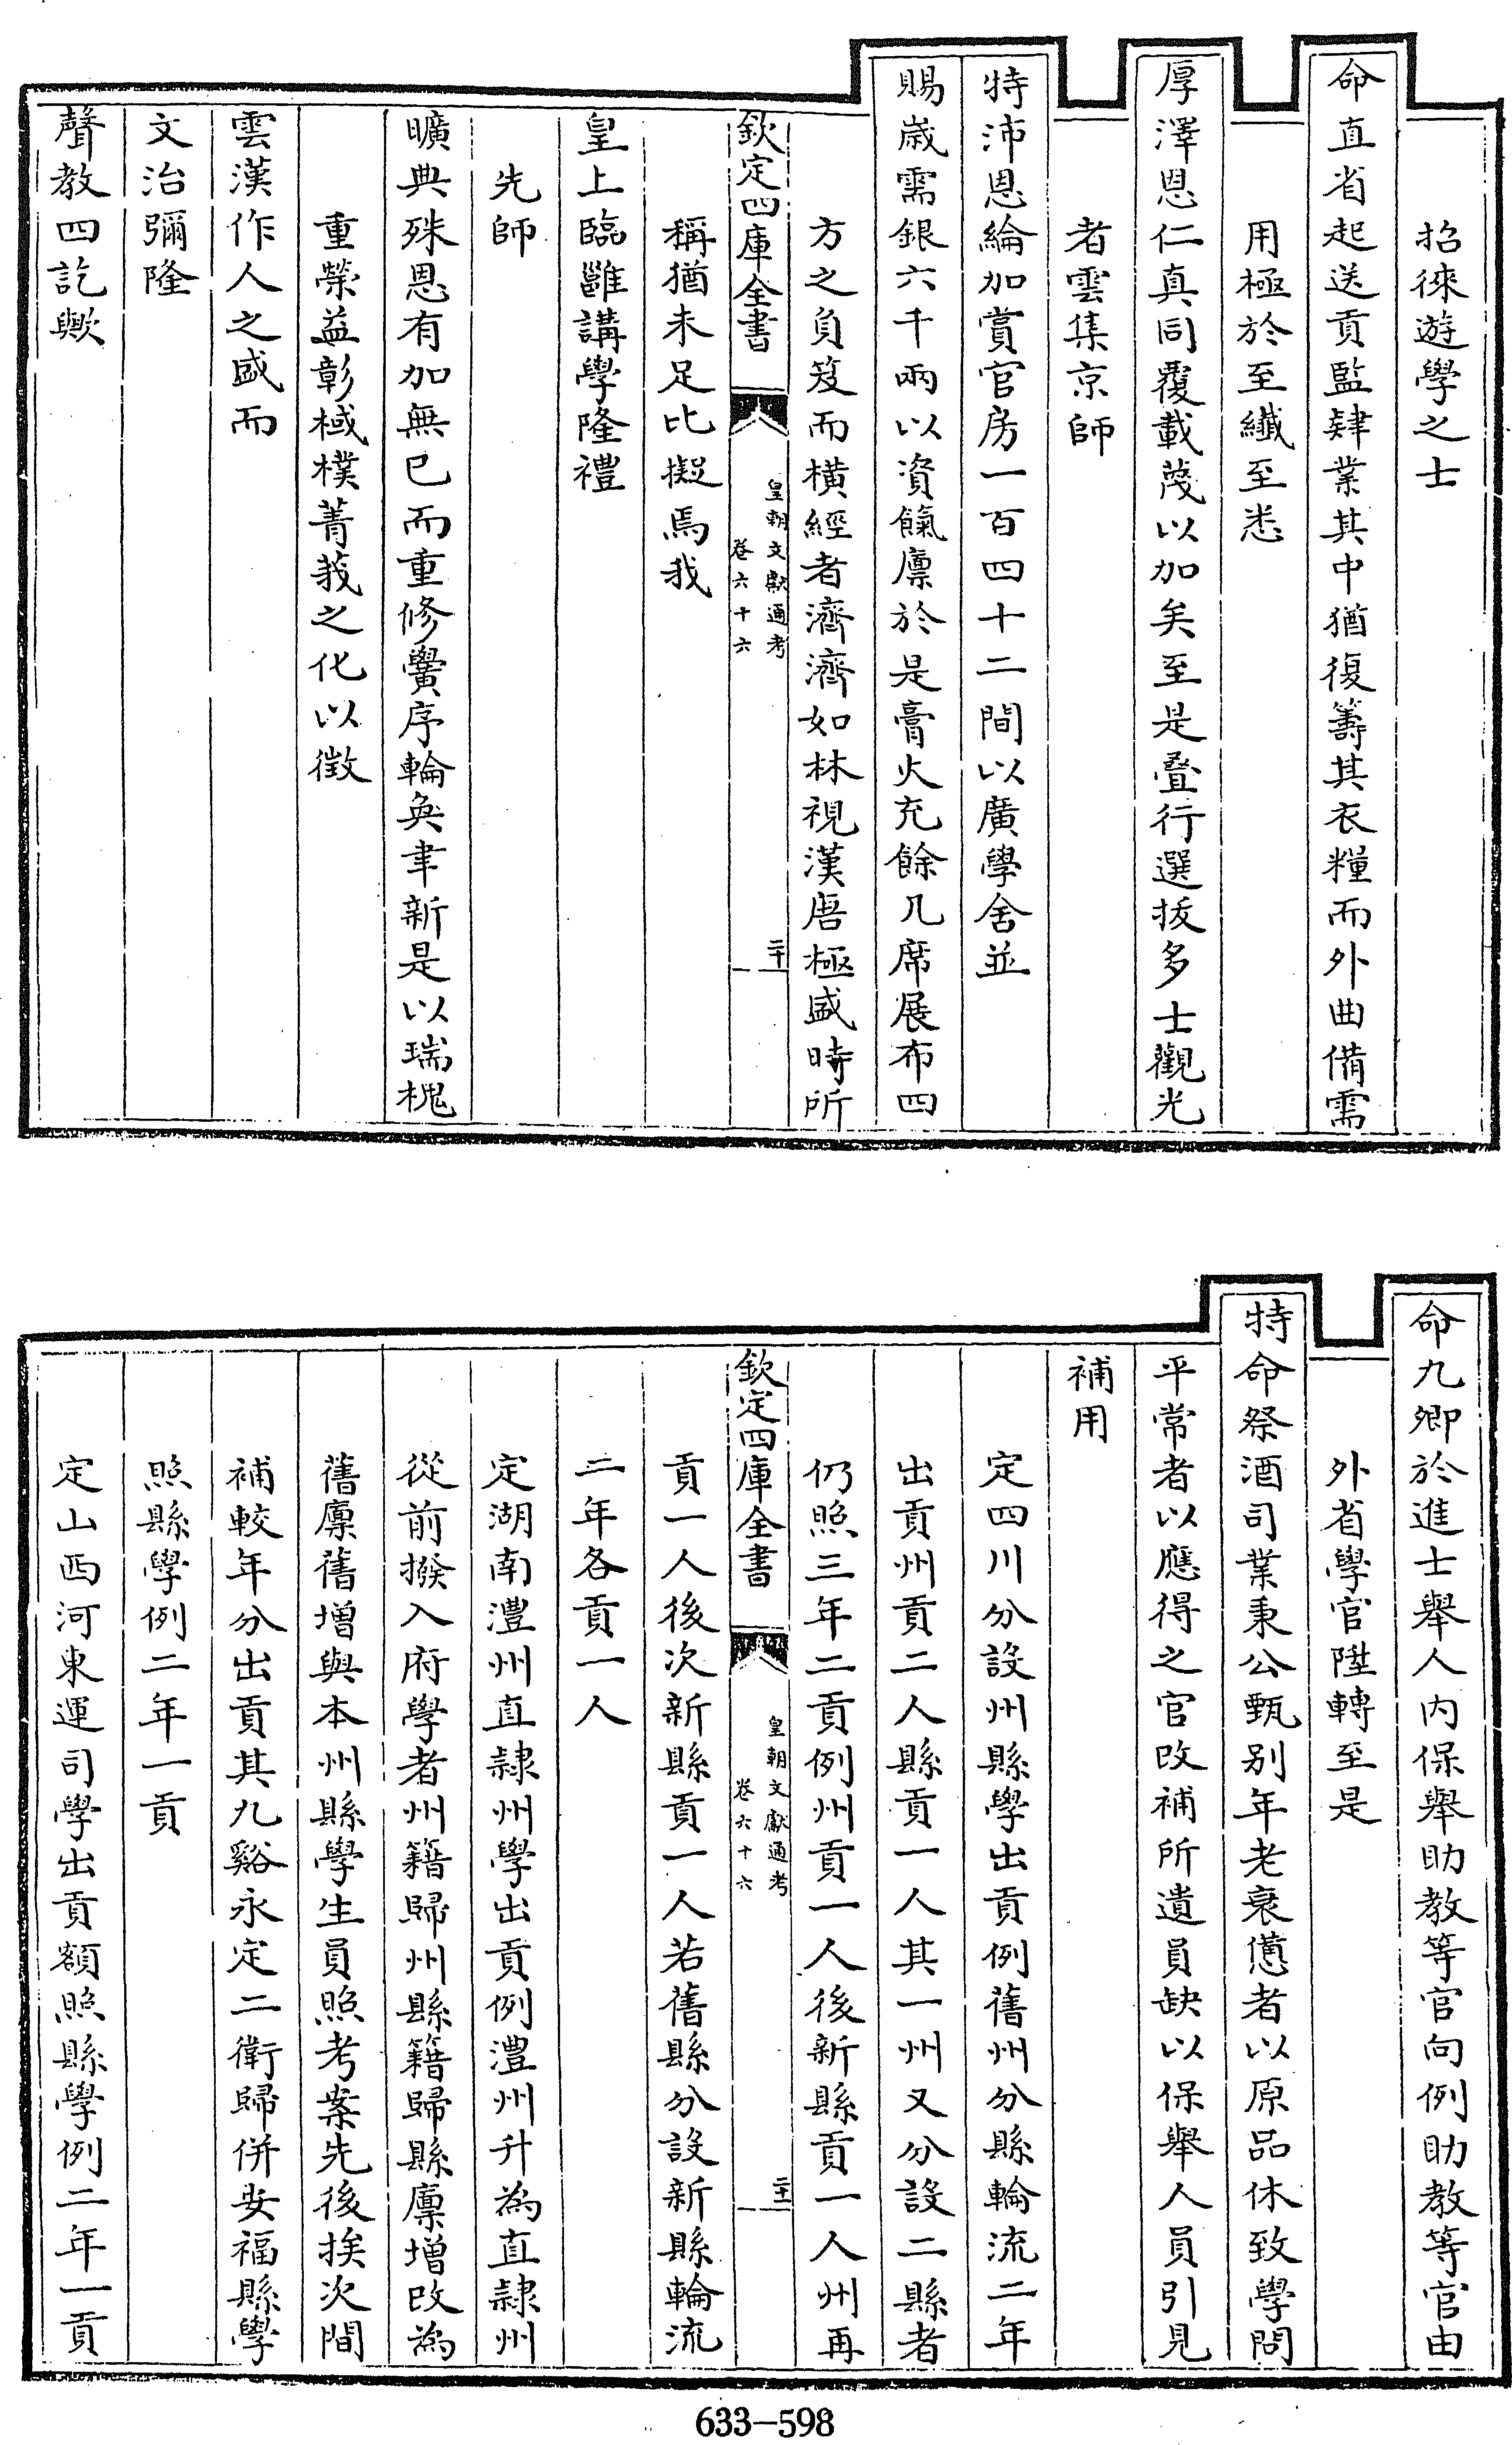 招徠遊學之士
命直省起送貢監肄業其中猶復籌其衣糧而外曲備需
用極於至纖至悉
厚澤恩仁真同覆載蔑以加矣至是疊行選拔多士觀光
者雲集京師
特沛恩綸加賞官房一百四十二間以廣學舍並
賜歲需銀六千兩以資餼廩於是膏火充餘几席展布四
方之負笈而橫經者濟濟如林視漢唐極盛時所
欽定四庫全書
皇朝文獻通考
卷六十六
二十
稱猶未足比擬焉我
皇上臨雝講學隆禮
先師
曠典殊恩有加無已而重修黌序輪奐聿新是以瑞槐
重榮益彰棫樸菁莪之化以徵
雲漢作人之盛而
文治彌隆
聲教四訖歟
命九卿於進士舉人內保舉助教等官向例助教等官由
外省學官陞轉至是
特命祭酒司業秉公甄别年老衰憊者以原品休致學問
平常者以應得之官改補所遺員缺以保舉人員引見
補用
定四川分設州縣學出貢例舊州分縣輪流二年
出貢州貢二人縣貢一人其一州又分設二縣者
仍照三年二貢例州貢一人後新縣貢一人州再
欽定四庫全書
皇朝文獻通考
卷六十六
二十一
貢一人後次新縣貢一人若舊縣分設新縣輪流
二年各貢一人
定湖南澧州直隸州學出貢例澧州升為直隸州
從前撥入府學者州籍歸州縣籍歸縣廩增改為
舊廩舊增與本州縣學生員照考案先後挨次間
補較年分出貢其九谿永定二衛歸併安福縣學
照縣學例二年一貢
定山西河東運司學出貢額照縣學例二年一貢
633-598